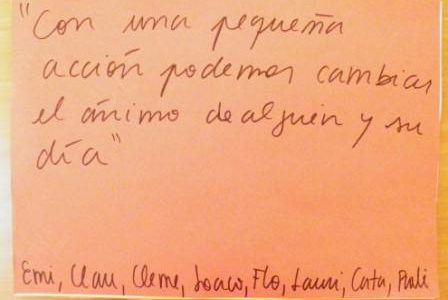 "Con una pequeña
acción podemos cambiar
el ánimo de alguien y su
día"
Emi, Clau, Cleme, Joaco, Flo, Lauri, Cata, Pauli